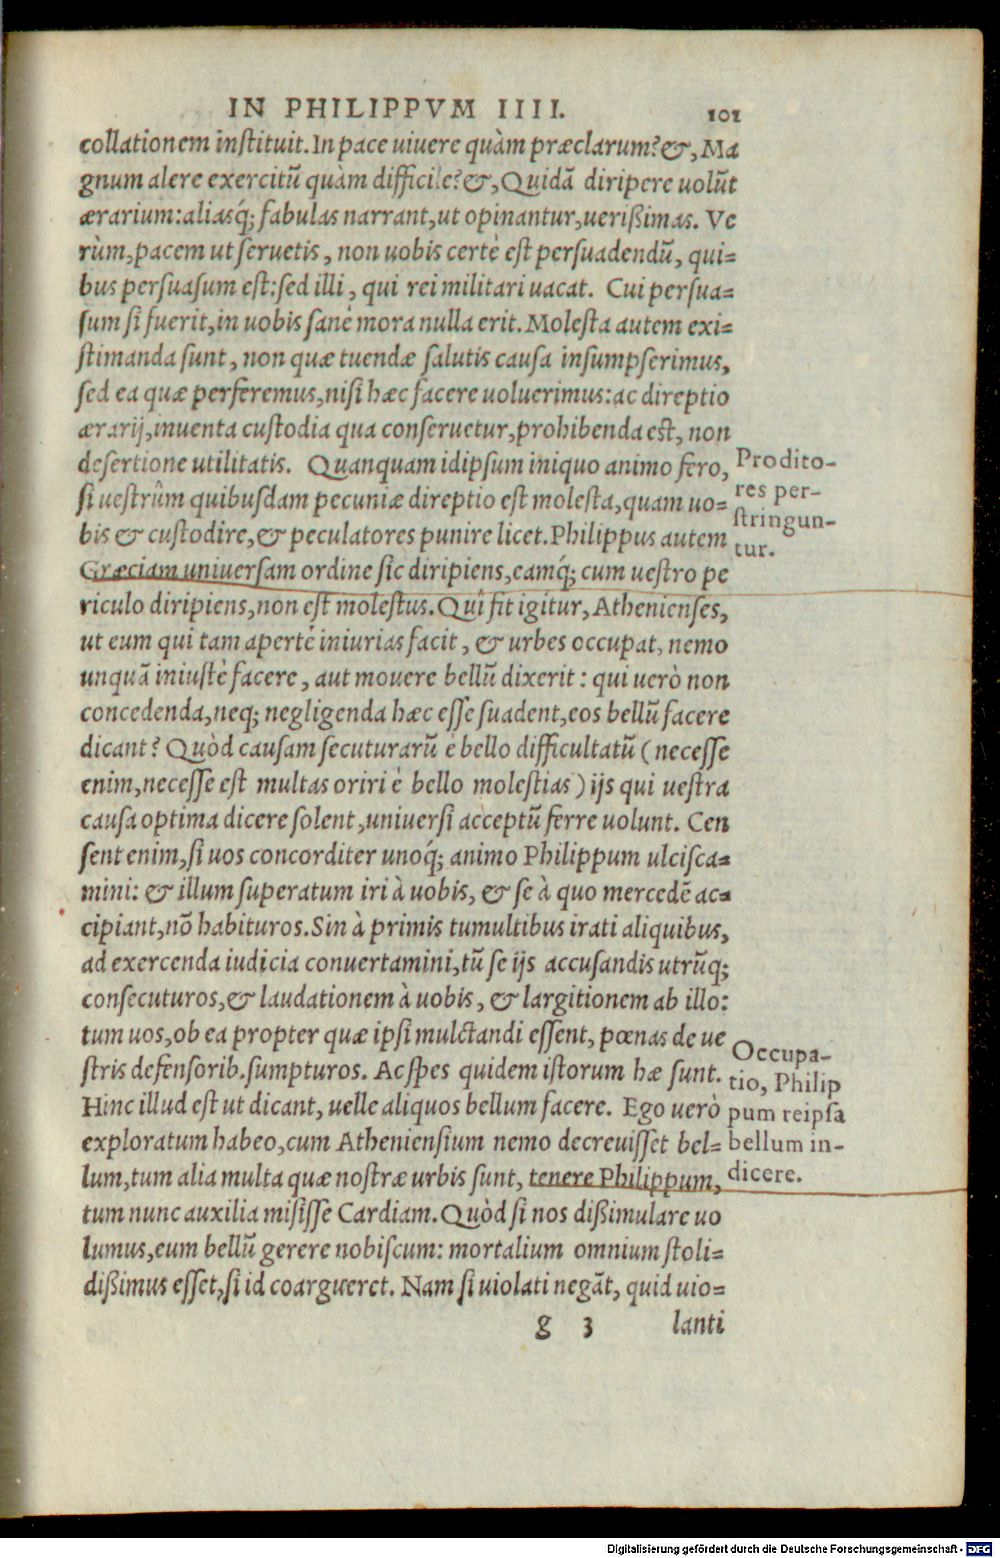 IN PHILIPPVM IIII. 101
collationem instituit. In pace uiuere quàm præclarum? &, Ma
gnum alere exercitũ quàm difficile? &, Quidã diripere uolũt
ærarium: aliasq́; fabulas narrant, ut opinantur, uerißimas. Ve
rùm, pacem ut seruetis, non uobis certè est persuadendũ, qui=
bus persuasum est: sed illi, qui rei militari uacat. Cui persua=
sum si fuerit, in uobis sanè mora nulla erit. Molesta autem exi=
stimanda sunt, non quæ tuendæ salutis causa insumpserimus,
sed ea quæ perferemus, nisi hæc facere uoluerimus: ac direptio
ærarij, inuenta custodia qua conseruetur, prohibenda est, non
desertione utilitatis. Quanquam idipsum iniquo animo fero,
si uestrûm quibusdam pecuniæ direptio est molesta, quam uo=
bis & custodire, & peculatores punire licet. Philippus autem
Græciam uniuersam ordine sic diripiens, eamq́; cum uestro pe
riculo diripiens, non est molestus. Quî fit igitur, Athenienses,
ut eum qui tam apertè iniurias facit, & urbes occupat, nemo
unquã iniustè facere, aut mouere bellũ dixerit: qui uerò non
concedenda, neq; negligenda hæc esse suadent, eos bellũ facere
dicant? Quòd causam secuturarũ è bello difficultatũ (necesse
enim, necesse est multas oriri è bello molestias) ijs qui uestra
causa optima dicere solent, uniuersi acceptũ ferre uolunt. Cen
sent enim, si uos concorditer unoq́; animo Philippum ulcisca=
mini: & illum superatum iri à uobis, & se à quo mercedẽ ac=
cipiant, nõ habituros. Sin à primis tumultibus irati aliquibus,
ad exercenda iudicia conuertamini, tũ se ijs accusandis utrũq;
consecuturos, & laudationem à uobis, & largitionem ab illo:
tum uos, ob ea propter quæ ipsi mulctandi essent, pœnas de ue
stris defensorib. sumpturos. Ac spes quidem istorum hæ sunt.
Hinc illud est ut dicant, uelle aliquos bellum facere. Ego uerò
exploratum habeo, cum Atheniensium nemo decreuisset bel=
lum, tum alia multa quæ nostræ urbis sunt, tenere Philippum,
tum nunc auxilia misisse Cardiam. Quòd si nos dißimulare uo
lumus, eum bellũ gerere nobiscum: mortalium omnium stoli=
dißimus esset, si id coargueret. Nam si uiolati negãt, quid uio=
g 3 lanti
Prodito-
res per-
stringun-
tur.
Occupa-
tio, Philip
pum reipsa
bellum in-
dicere.
Digitalisierung gefördert durch die Deutsche Forschungsgemeinschaft - DFG